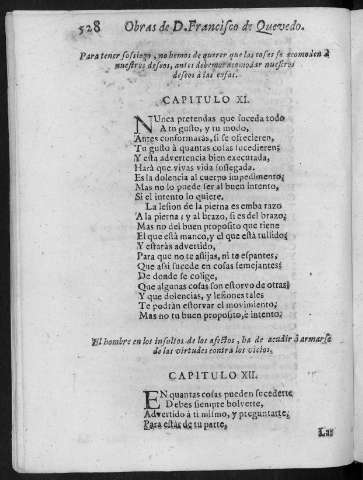 528 Obras de D. Francisco de Quevedo.
Para tener sossiego, no hemos de querer que las cosas se acomoden à
nuestros deseos, antes debemos acomodar nuestros
deseos à las cosas.
CAPITULO XI.
NUnca pretendas que suceda todo
A tu gusto, y tu modo,
Antes conformaràs, si se ofrecieren,
Tu gusto à quantas cosas sucedieren;
Y esta advertencia bien executada,
Harà que vivas vida sossegada.
Es la dolencia al cuerpo impedimento;
Mas no lo puede ser al buen intento,
Si el intento lo quiere.
La lesion de la pierna es embarazo
A la pierna; y al brazo, si es del brazo;
Mas no del buen proposito que tiene
El que està manco, y el que està tullido;
Y estaràs advertido,
Para que no te aflijas, ni te espantes,
Que assi sucede en cosas semejantes;
De donde se colige,
Que algunas cosas son estorvo de otras;
Y que dolencias, y lesiones tales
Te podràn estorvar el movimiento;
Mas no tu buen proposito, è intento.
El hombre en los insultos de los afectos, ha de acudir à armarse
de las virtudes contra los vicios.
CAPITULO XII.
EN quantas cosas pueden sucederte
Debes siempre bolverte,
Advertido à ti mismo, y preguntarte,
Para estàr de tu parte,
Las